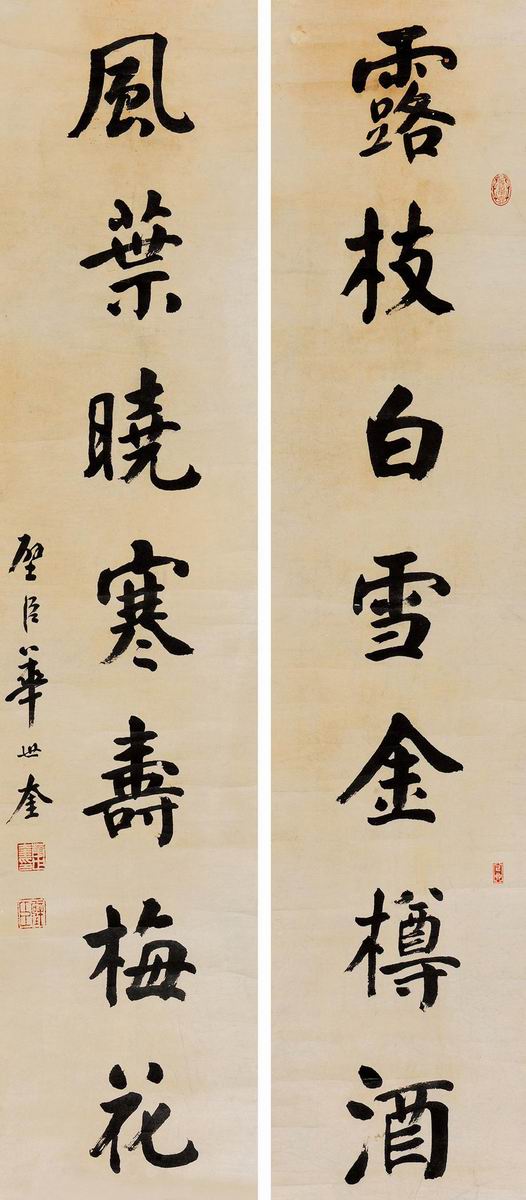 露枝白雪金樽酒
風葉曉寒壽梅花
璧臣華世奎